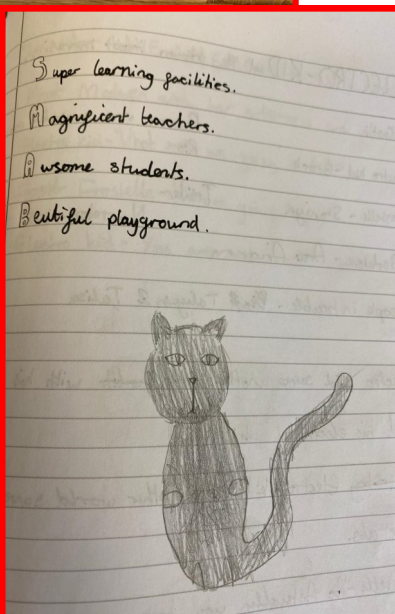 Super learning facilities.
Magnificent teachers.
Awsome students.
Beutiful playground.